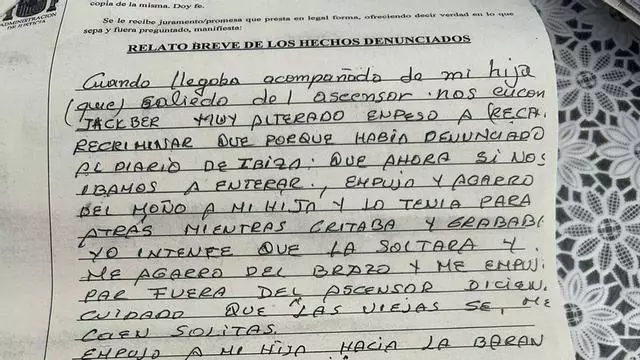 ADMINISTRACION
DE JUSTICIA
copia de la misma. Doy fe.
Se le recibe juramento/promesa que presta en legal forma, ofreciendo decir verdad en lo que
sepa y fuera preguntado, manifiesta:
RELATO BREVE DE LOS HECHOS DENUNCIADOS
Cuando llegaba acompañado de mi hija
(que) saliedo del ascensor nos encon
JACKBER MUY ALTERADO EMPESO A (RECA
RECRIMINAR QUE PORQUE HABIA DENUNCIADO
AL DIARIO DE IBIZA. QUE AHORA SI NOS
IBAMOS A ENTERAR., EMPUJO Y AGARRO
DEL MOÑO A MI HIJA Y LO TENIA PARA
ATRÁS MIENTRAS GRITABA Y GRABABA
YO INTENTE QUE LA SOLTARA Y
ME AGARRO DEL BRAZO Y ME EMPUJ
PAR FUERA DEL ASCENSOR DICIEN
CUIDADO QUE LAS VIEJAS SE, ME
CAEN SOLITAS
EMPUJO A MI HIJA HACIA LA BARAN